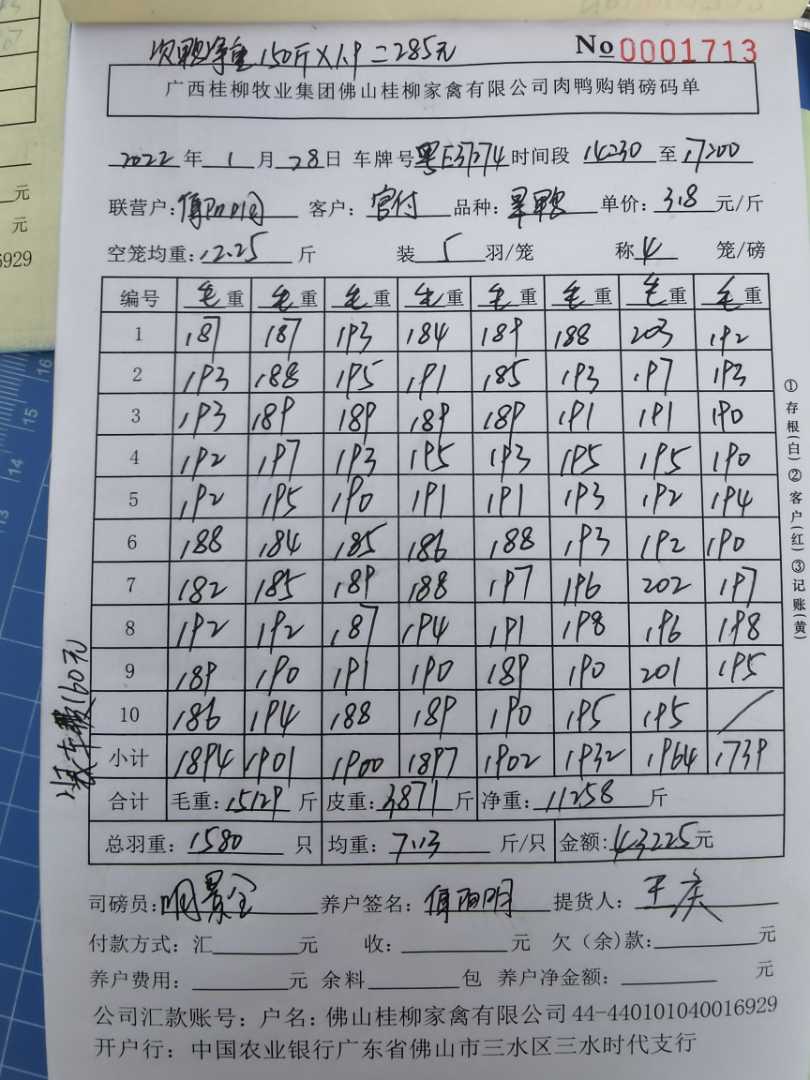 次鸭净重150斤×1.9=285元
No 0001713
广西桂柳牧业集团佛山桂柳家禽有限公司肉鸭购销磅码单
2022 年 1 月 28 日 车牌号 粤E37274 时间段 14:30 至 17:00
联营户: 客户: 官付 品种: 单价: 3.8 元/斤
空笼均重: 12.25 斤 装 5 羽/笼 称 4 笼/磅
编号 毛重 毛重 毛重 毛重 毛重 毛重 毛重 毛重
1 187 187 193 184 189 188 203 192
2 193 188 195 191 185 193 197 193
3 193 189 189 189 189 191 191 190
4 192 197 193 195 193 195 195 190
5 192 195 190 191 191 193 192 194
6 188 184 185 186 188 193 192 190
7 182 185 189 188 197 196 202 197
8 192 192 187 194 191 198 196 198
9 189 190 191 190 189 190 201 195
10 186 194 188 189 190 195 195 /
小计 1894 1901 1900 1897 1902 1932 1964 1739
合计 毛重: 15129 斤 皮重: 3871 斤 净重: 11258 斤
总羽重: 1580 只 均重: 7.13 斤/只 金额: 43225 元
司磅员: 养户签名: 提货人: 王庆
付款方式: 汇 元 收: 元 欠(余)款: 元
养户费用: 元 余料 包 养户净金额: 元
公司汇款账号: 户名: 佛山桂柳家禽有限公司 44-440101040016929
开户行: 中国农业银行广东省佛山市三水区三水时代支行
①存根(白)②客户(红)③记账(黄)
装车费160元
元
元
6929
16
15
14
13